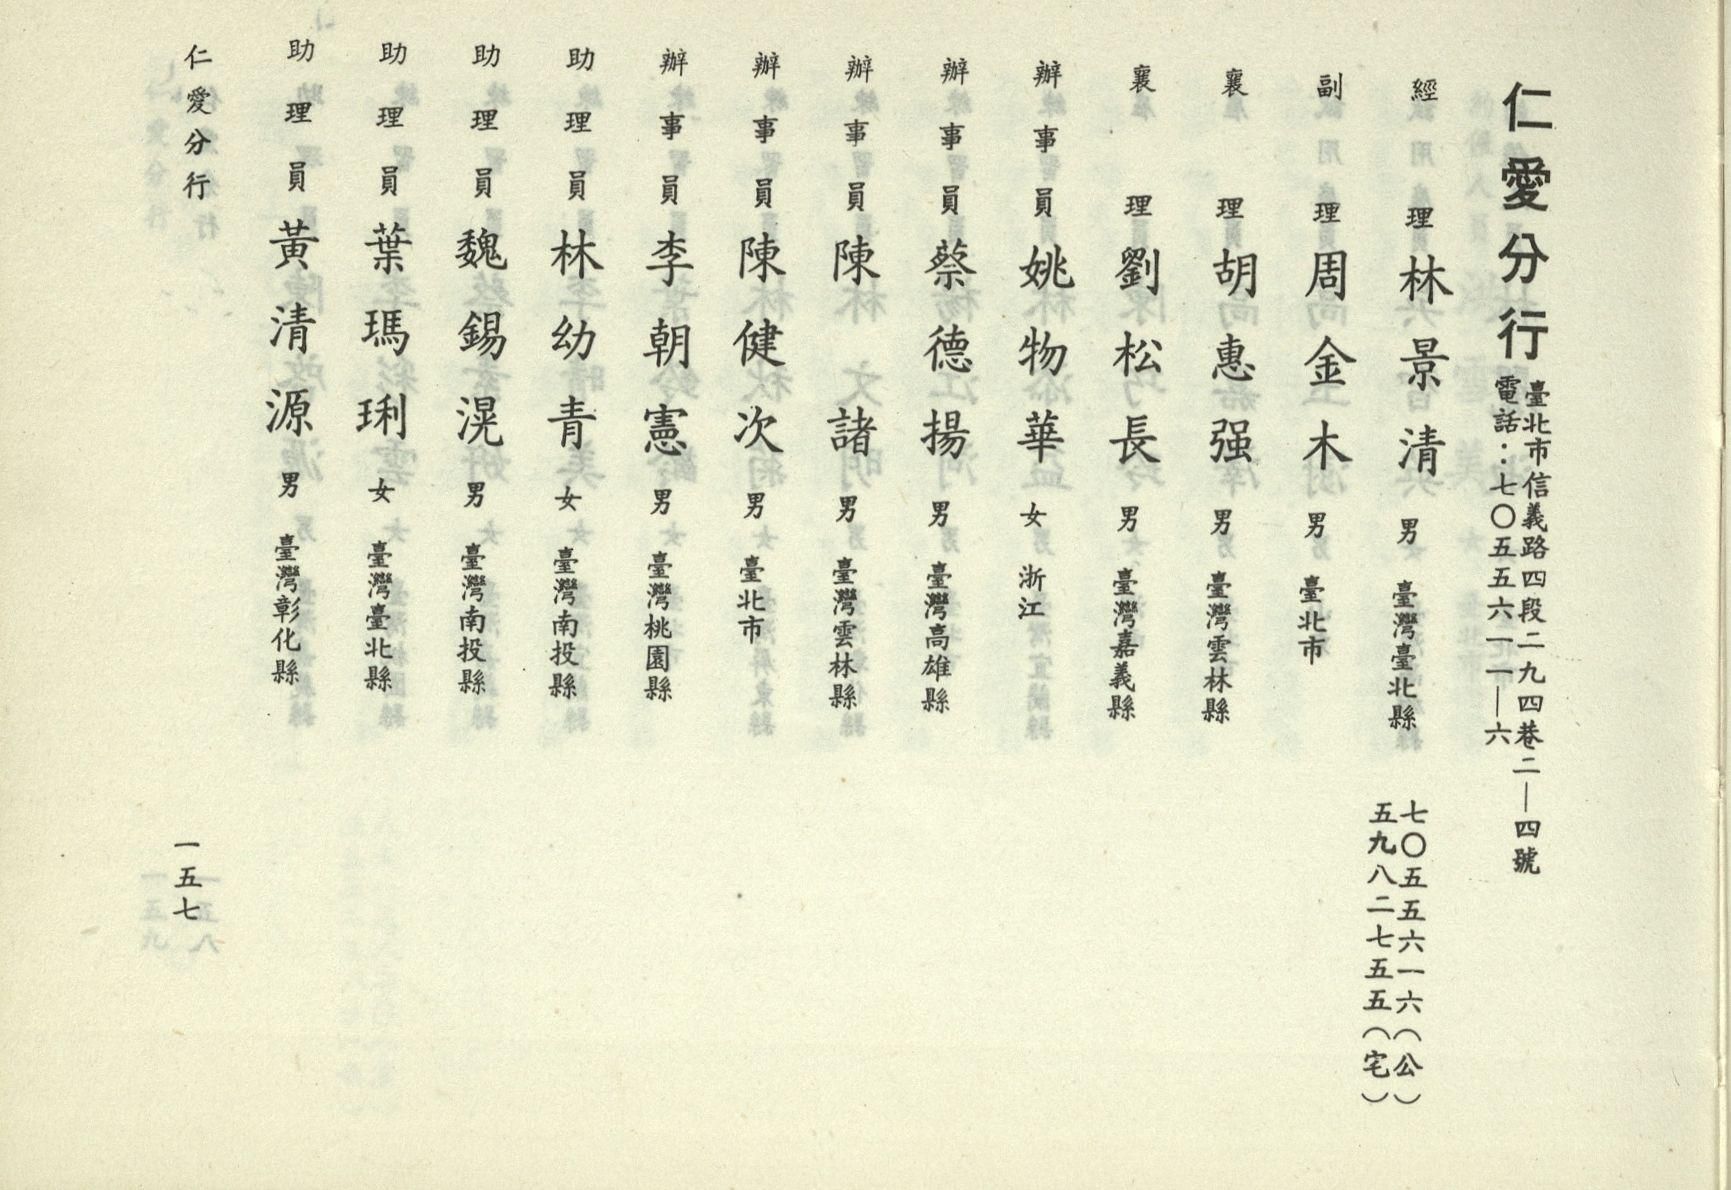 仁愛分行
臺北市信義路四段二九四巷二—四號
電話：七〇五五六一一—六
經理 林景清 男 臺灣臺北縣
七〇五五六一六（公）
五九八二七五五（宅）
副理 周金木 男 臺北市
襄理 胡惠强 男 臺灣雲林縣
襄理 劉松長 男 臺灣嘉義縣
辦事員 姚物華 女 浙江
辦事員 蔡德揚 男 臺灣高雄縣
辦事員 陳諸 男 臺灣雲林縣
辦事員 陳健次 男 臺北市
辦事員 李朝憲 男 臺灣桃園縣
助理員 林幼青 女 臺灣南投縣
助理員 魏錫滉 男 臺灣南投縣
助理員 葉瑪琍 女 臺灣臺北縣
助理員 黃清源 男 臺灣彰化縣
仁愛分行
一五七